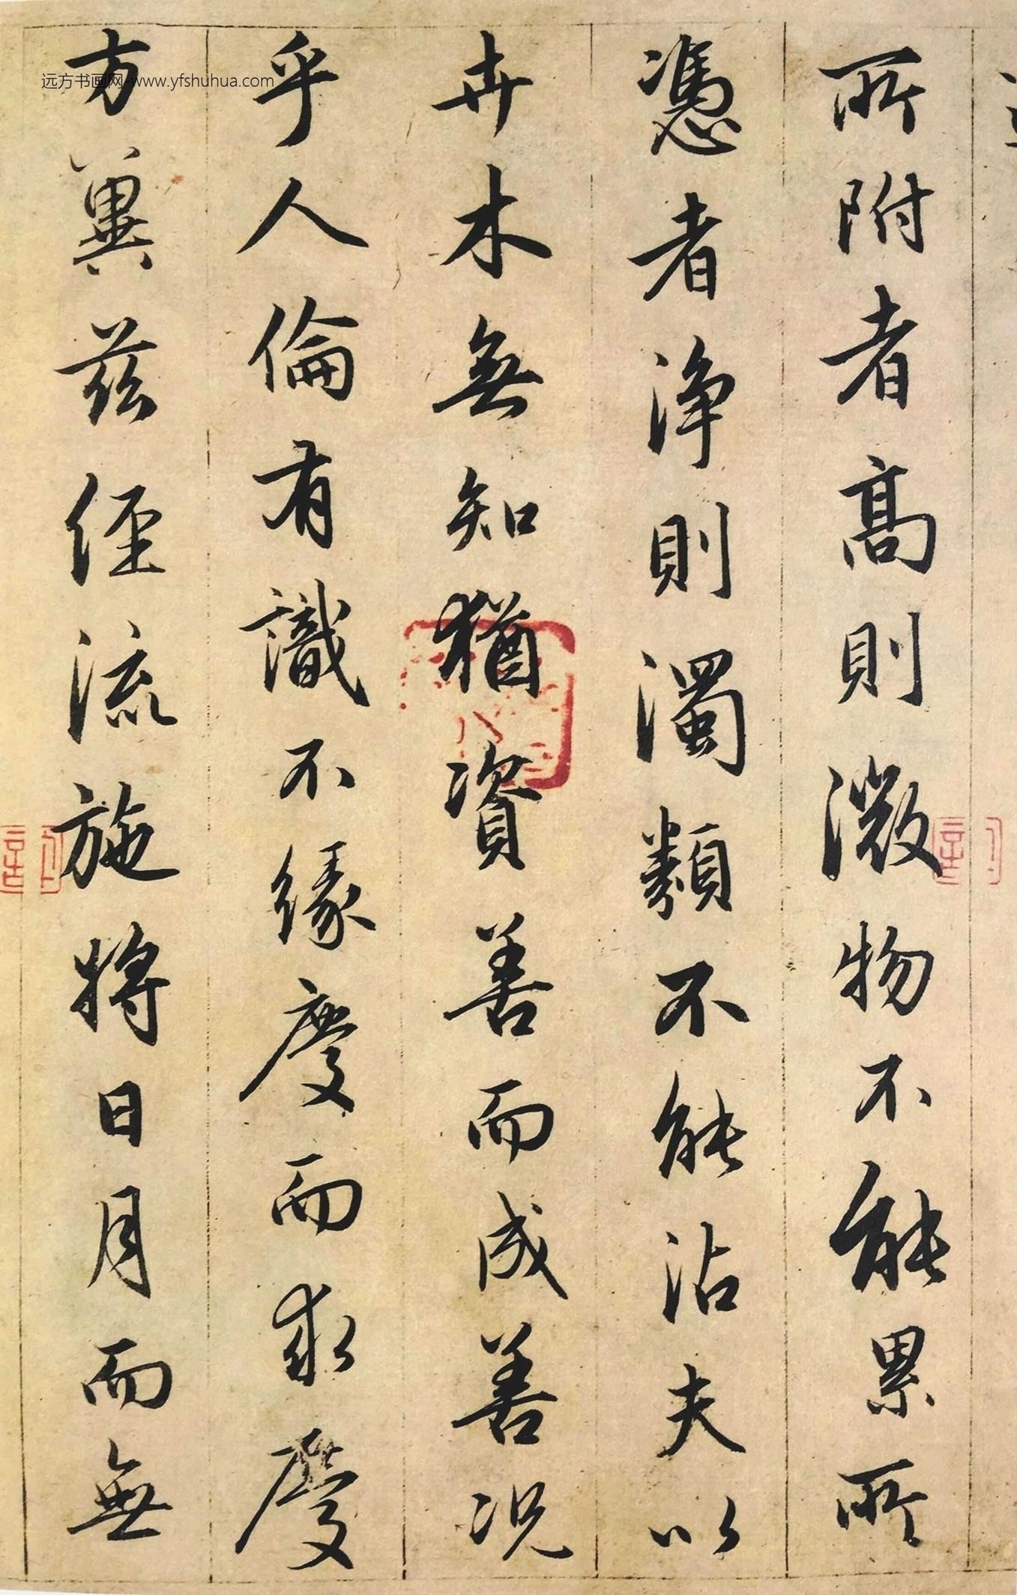 所附者高則微物不能累所
憑者淨則濁類不能沾夫以
卉木無知猶資善而成善況
乎人倫有識不緣慶而求慶
方冀茲經流施將日月而無
远方书画网-www.yfshuhua.com